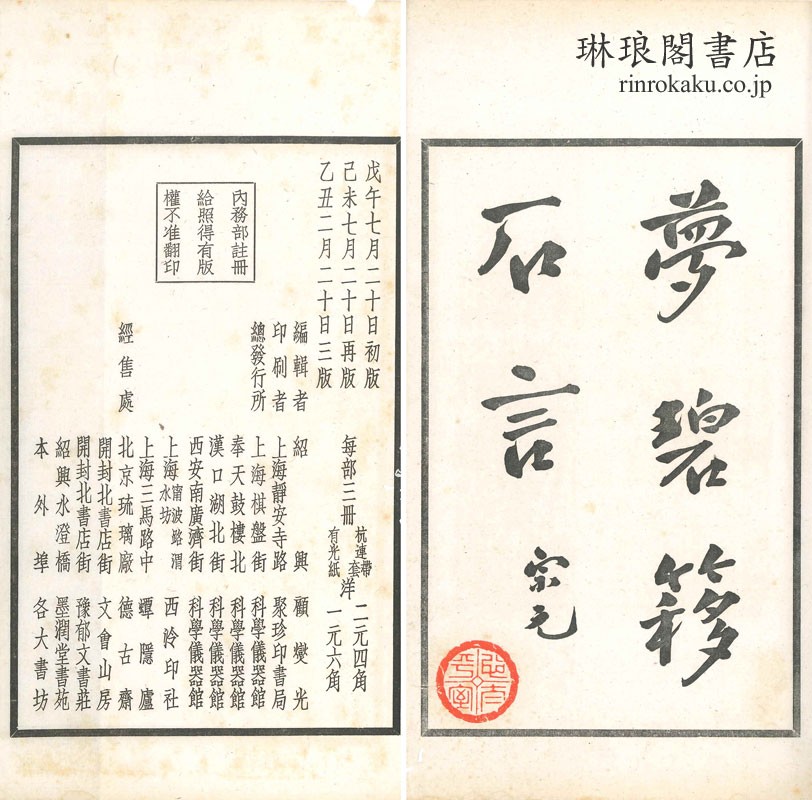 琳琅閣書店
rinrokaku.co.jp
夢碧簃
石言
宗元
戊午七月二十日初版
己未七月二十日再版
乙丑二月二十日三版
內務部註冊
給照得有版
權不准翻印
每部三冊 杭連帶套 洋二元四角
有光紙 一元六角
編輯者 紹興 顧燮光
印刷者 上海靜安寺路 聚珍印書局
總發行所 上海棋盤街 科學儀器館
奉天鼓樓北 科學儀器館
漢口湖北街 科學儀器館
西安南廣濟街 科學儀器館
經售處 上海甯波路渭水坊 西泠印社
上海三馬路中 蟫隱廬
北京琉璃廠 德古齋
開封北書店街 文會山房
開封北書店街 豫郁文書莊
紹興水澄橋 墨潤堂書苑
本外埠 各大書坊